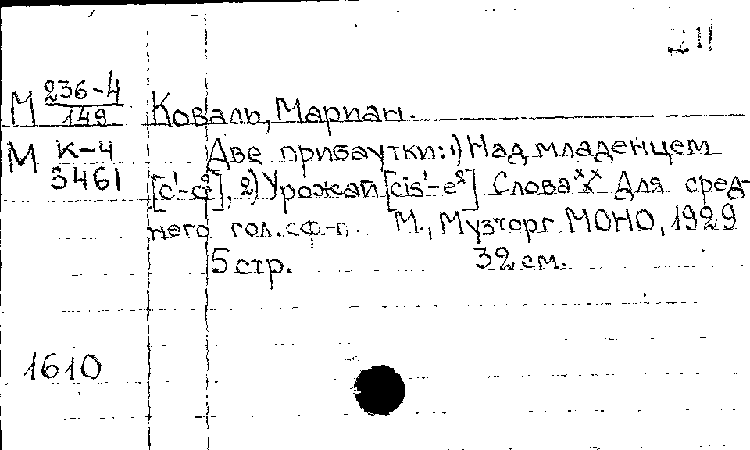 М 236-4/149 Коваль, Мариан.
М К-4/3461 Две прибаутки: 1) Над младенцем
[c¹-d²], 2) Урожай [cis¹-e²] Слова xxx Для сред-
него гол. с ф-п. М., Музторг МОНО, 1929
5 стр. 32 см.
1610